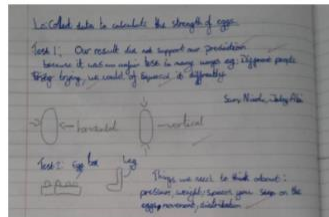 L.O Collect data to calculate the strength of eggs.
Test 1: Our result did not support our prediction
because it was an unfair test in many ways eg: Different people
trying, we could of squeezed it differently
horizontal
vertical
Test 2 Egg box
Leg
Things we need to think about:
pressure, weight, on the
egg, movement, distribution